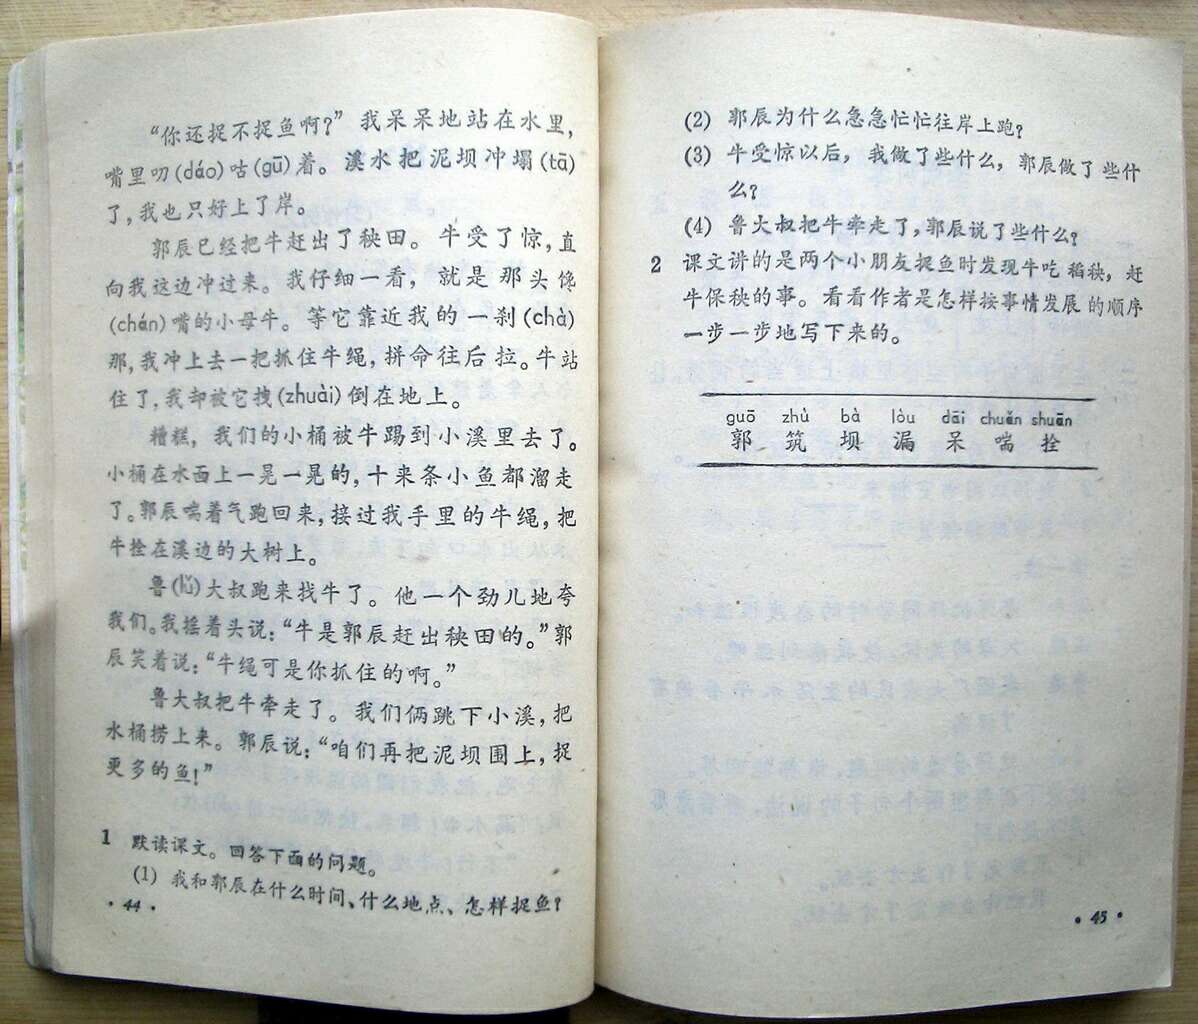 “你还捉不捉鱼啊?”我呆呆地站在水里,
嘴里叨(dáo)咕(gū)着。溪水把泥坝冲塌(tā)
了,我也只好上了岸。
郭辰已经把牛赶出了秧田。牛受了惊,直
向我这边冲过来。我仔细一看,就是那头馋
(chán)嘴的小母牛。等它靠近我的一刹(chà)
那,我冲上去一把抓住牛绳,拼命往后拉。牛站
住了,我却被它拽(zhuài)倒在地上。
糟糕,我们的小桶被牛踢到小溪里去了。
小桶在水西上一晃一晃的,十来条小鱼都溜走
了。郭辰喘着气跑回来,接过我手里的牛绳,把
牛拴在溪边的大树上。
鲁(lǔ)大叔跑来找牛了。他一个劲儿地夸
我们。我摇着头说:“牛是郭辰赶出秧田的。”郭
辰笑着说:“牛绳可是你抓住的啊。”
鲁大叔把牛牵走了。我们俩跳下小溪,把
水桶捞上来。郭辰说:“咱们再把泥坝围上,捉
更多的鱼!”
1 默读课文。回答下面的问题。
(1) 我和郭辰在什么时间、什么地点、怎样捉鱼?
· 44 ·
(2) 郭辰为什么急急忙忙往岸上跑?
(3) 牛受惊以后,我做了些什么,郭辰做了些什
么?
(4) 鲁大叔把牛牵走了,郭辰说了些什么?
2 课文讲的是两个小朋友捉鱼时发现牛吃稻秧,赶
牛保秧的事。看看作者是怎样按事情发展的顺序
一步一步地写下来的。
guō zhù bà lòu dāi chuǎn shuān
郭 筑 坝 漏 呆 喘 拴
· 45 ·